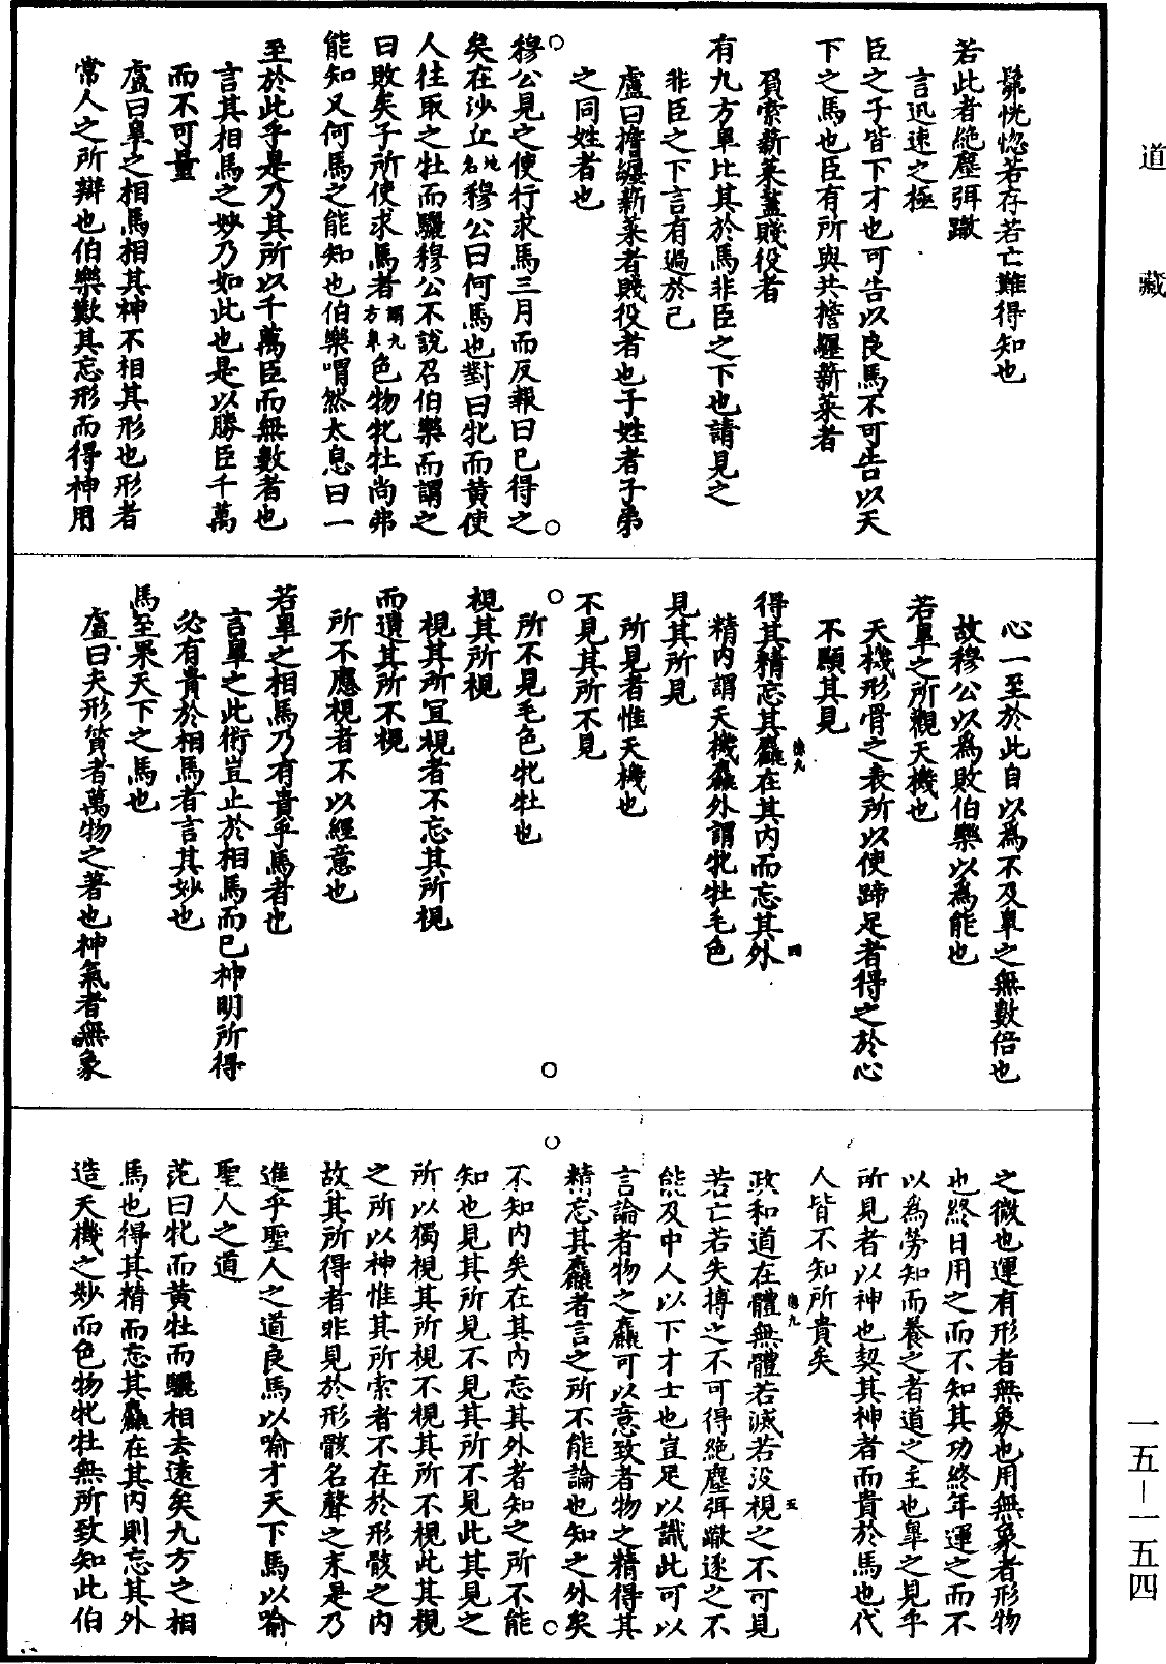 道藏
髴恍惚若存若亡難得知也
若此者絶塵弭𨅊
言迅速之極
臣之子皆下才也可告以良馬不可告以天
下之馬也臣有所與共擔纆薪菜者
負索薪菜蓋賤役者
有九方臯比其於馬非臣之下也請見之
非臣之下言有過於己
盧曰擔纆薪菜者賤役者也子姓者子弟
之同姓者也
穆公見之使行求馬三月而反報曰已得之
矣在沙丘地名穆公曰何馬也對曰牝而黄使
人往取之牡而驪穆公不說召伯樂而謂之
曰敗矣子所使求馬者謂九方臯色物牝牡尚弗
能知又何馬之能知也伯樂喟然太息曰一
至於此乎是乃其所以千萬臣而無數者也
言其相馬之妙乃如此也是以勝臣千萬
而不可量
盧曰臯之相馬相其神不相其形也形者
常人之所辯也伯樂歎其忘形而得神用
心一至於此自以爲不及臯之無數倍也
故穆公以爲敗伯樂以爲能也
若臯之所觀天機也
天機形骨之表所以使蹄足者得之於心
不顯其見
得其精忘其麤在其内而忘其外
精内謂天機麤外謂牝牡毛色
見其所見
所見者惟天機也
不見其所不見
所不見毛色牝牡也
視其所視
視其所宜視者不忘其所視
而遺其所不視
所不應視者不以經意也
若臯之相馬乃有貴乎馬者也
言臯之此術豈止於相馬而已神明所得
必有貴於相馬者言其妙也
馬至果天下之馬也
盧曰夫形質者萬物之著也神氣者無象
之微也運有形者無象也用無象者形物
也終日用之而不知其功終年運之而不
以爲勞知而養之者道之主也臯之見乎
所見者以神也契其神者而貴於馬也代
人皆不知所貴矣
政和道在體無體若滅若没視之不可見
若亡若失搏之不可得絶塵弭𨅊逐之不
能及中人以下才士也豈足以識此可以
言論者物之麤可以意致者物之精得其
精忘其麤者言之所不能論也知之外矣
不知内矣在其内忘其外者知之所不能
知也見其所見不見其所不見此其見之
所以獨視其所視不視其所不視此其視
之所以神惟其所索者不在於形骸之内
故其所得者非見於形骸名聲之末是乃
進乎聖人之道良馬以喻才天下馬以喻
聖人之道
范曰牝而黄牡而驪相去遠矣九方之相
馬也得其精而忘其麤在其内則忘其外
造天機之妙而色物牝牡無所致知此伯
一五―一五四